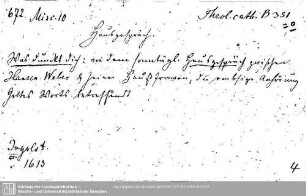 672. Misc. 10
Theol. cath. B 331
Hausgespräch.
Was dunckt dich: von dem sonntägl. Hausgespräch zwischen
Hausen-Vater & seiner Hausfrawen, die embsige Anhörung
Gottes Worts betreffendt
Ingolst.
1613
4
Sächsische Landesbibliothek -
Staats- und Universitätsbibliothek Dresden